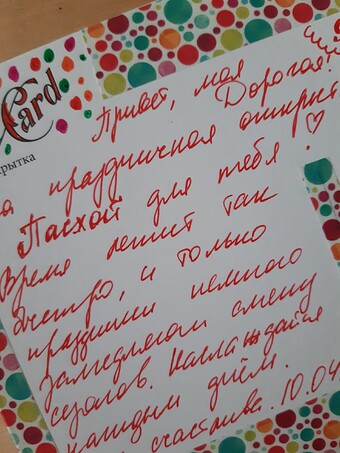 Card
крытка
Привет, моя
Дорогая!
а праздничная открыт
Пасхой для тебя!
Время летит так
быстро, и только
праздники немного
замедляют смену
сезонов. Наслаждайся
каждым днём.
счастлива. 10.04